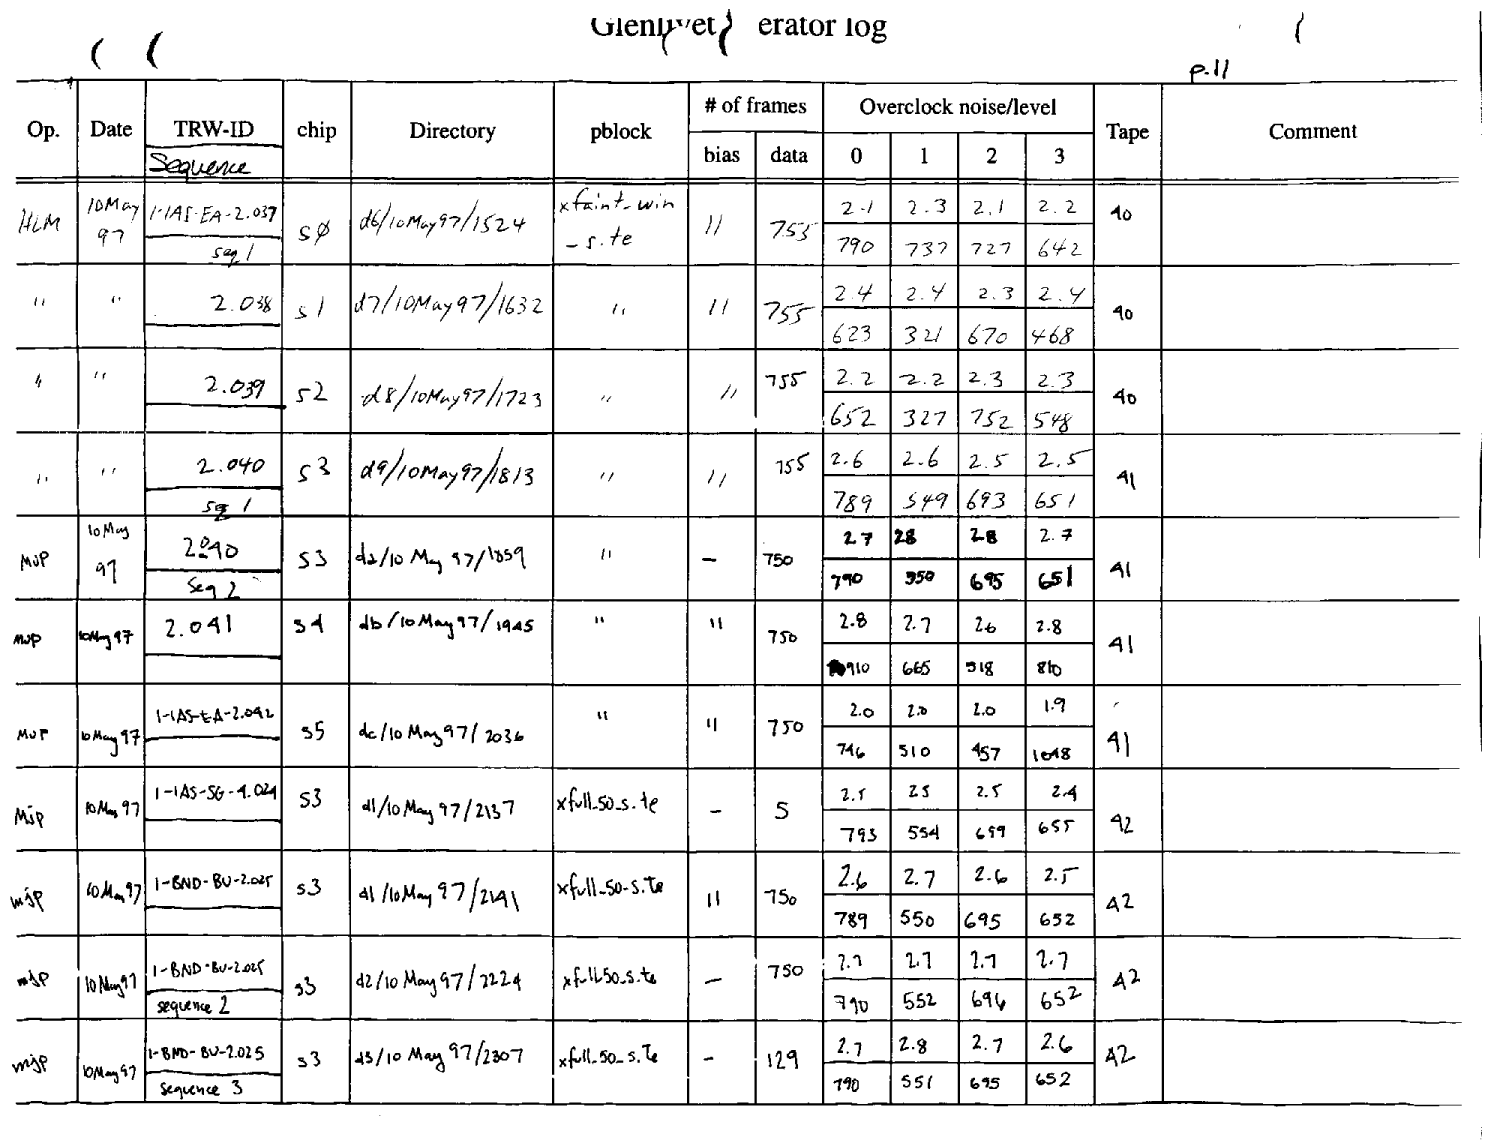 Glenlivet erator log
p.11
Op. Date TRW-ID chip Directory pblock # of frames Overclock noise/level Tape Comment
Sequence bias data 0 1 2 3
HLM 10May 97 1-IAS-EA-2.037 s0 d6/10May97/1524 xfaint_win 11 755 2.1 2.3 2.1 2.2 40
seq 1 _s.te 790 737 727 642
" " 2.038 s1 d7/10May97/1632 " 11 755 2.4 2.4 2.3 2.4 40
623 321 670 468
" " 2.039 s2 d8/10May97/1723 " 11 755 2.2 2.2 2.3 2.3 40
652 327 752 548
" " 2.040 s3 d9/10May97/1813 " 11 755 2.6 2.6 2.5 2.5 41
seq 1 789 549 693 651
MJP 10May 97 2.040 s3 da/10 May 97/1859 " - 750 2.7 28 2.8 2.7 41
Seq 2 790 550 695 651
MJP 10May97 2.041 s4 db/10May97/1945 " 11 750 2.8 2.7 26 2.8 41
910 665 518 810
MJP 10May97 1-IAS-EA-2.042 s5 dc/10May97/2036 " 11 750 2.0 2.0 2.0 1.9 41
746 510 457 1048
MJP 10May97 1-IAS-SG-4.024 s3 d1/10May97/2137 xfull_50_s.te - 5 2.5 25 2.5 2.4 42
793 554 699 655
mjp 10May97 1-BND-BU-2.025 s3 d1/10May97/2141 xfull_50_s.te 11 750 2.6 2.7 2.6 2.5 42
789 550 695 652
mjp 10May97 1-BND-BU-2.025 s3 d2/10May97/2224 xfull50_s.te - 750 2.7 2.7 2.7 2.7 42
sequence 2 790 552 696 652
mjp 10May97 1-BND-BU-2.025 s3 d3/10May97/2307 xfull_50_s.te - 129 2.7 2.8 2.7 2.6 42
sequence 3 790 551 695 652